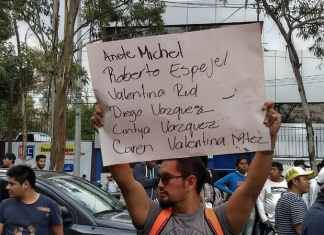 Anete Michel
Roberto Espejel
Valentina Rud
Diego Vázquez
Cintya Vázquez
Caren Valentina Mtez